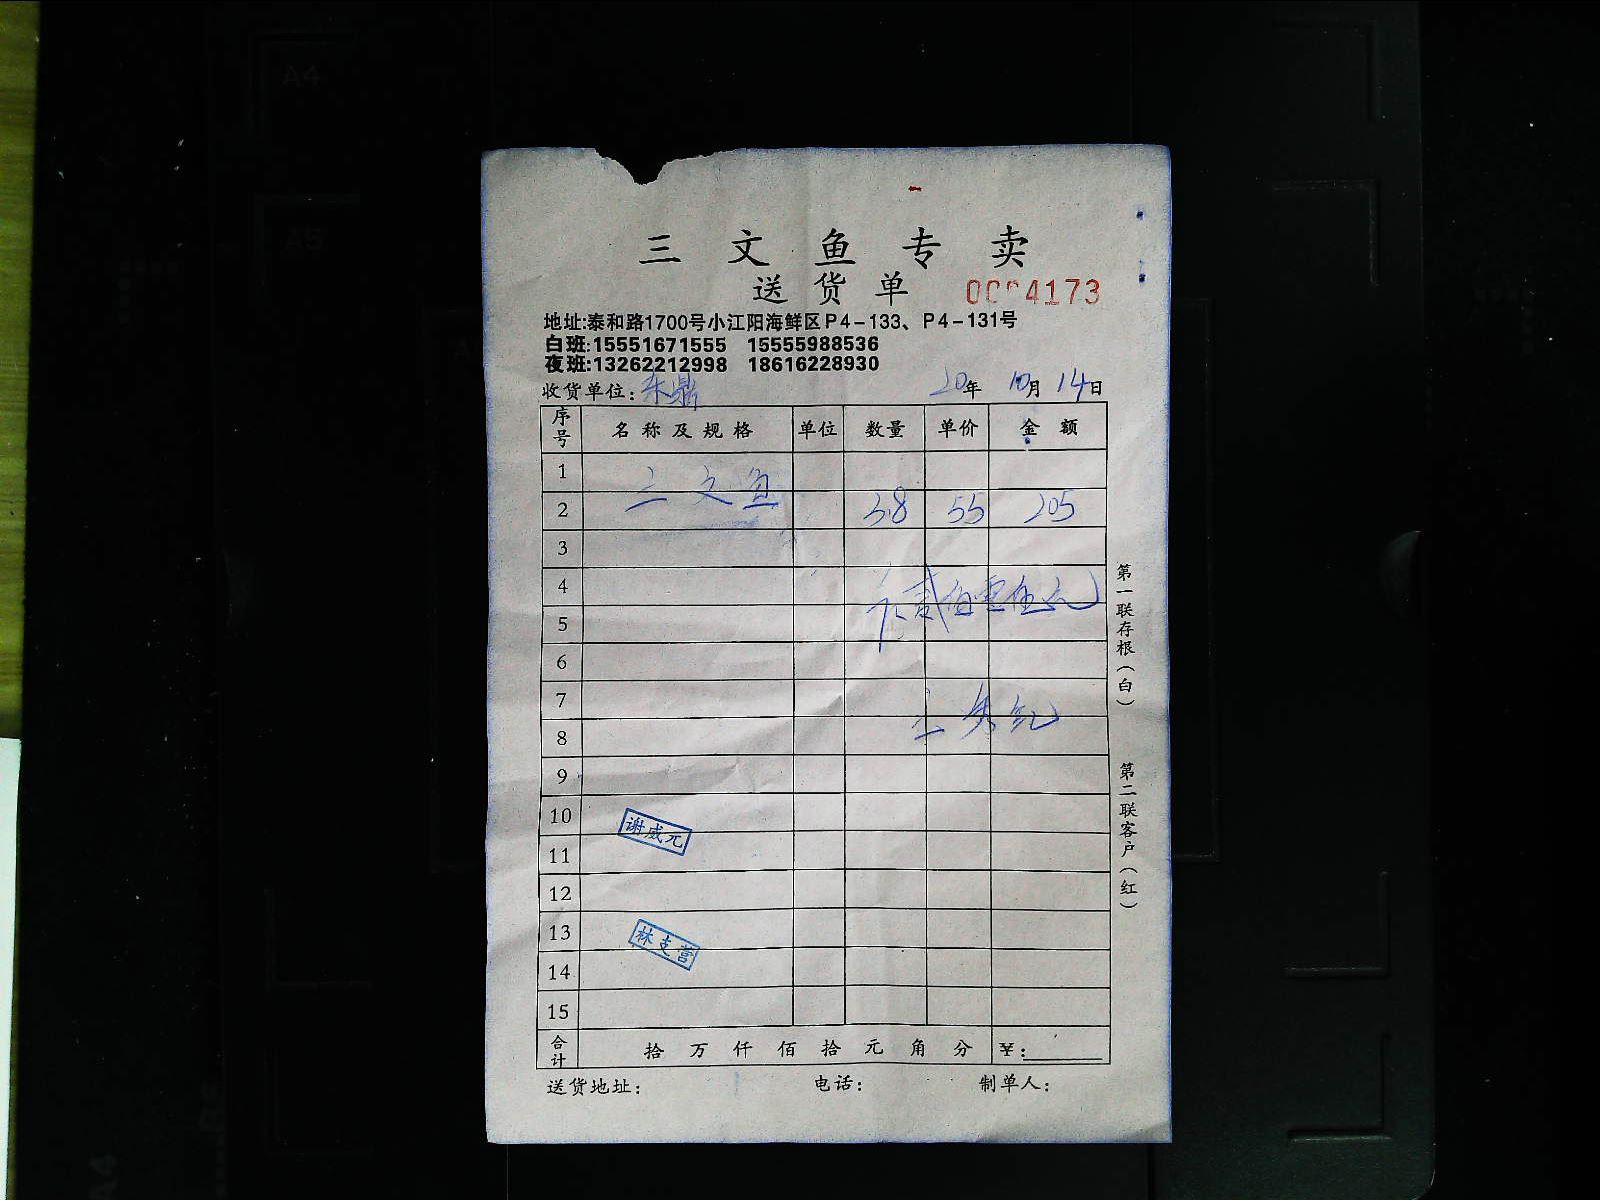 三文鱼专卖
送货单 0004173
地址:泰和路1700号小江阳海鲜区P4-133、P4-131号
白班:15551671555 15555988536
夜班:13262212998 18616228930
收货单位:东鼎 20年 10月 14日
序号 名称及规格 单位 数量 单价 金额
1
三文鱼
2 3.8 55 205
3
4
贰佰零伍元
5
6
7
8
9
10
谢威元
11
12
13
林支营
14
15
合计 拾万仟佰拾元角分 ¥:
送货地址: 电话: 制单人:
第一联存根(白)
第二联客户(红)
A4
A5